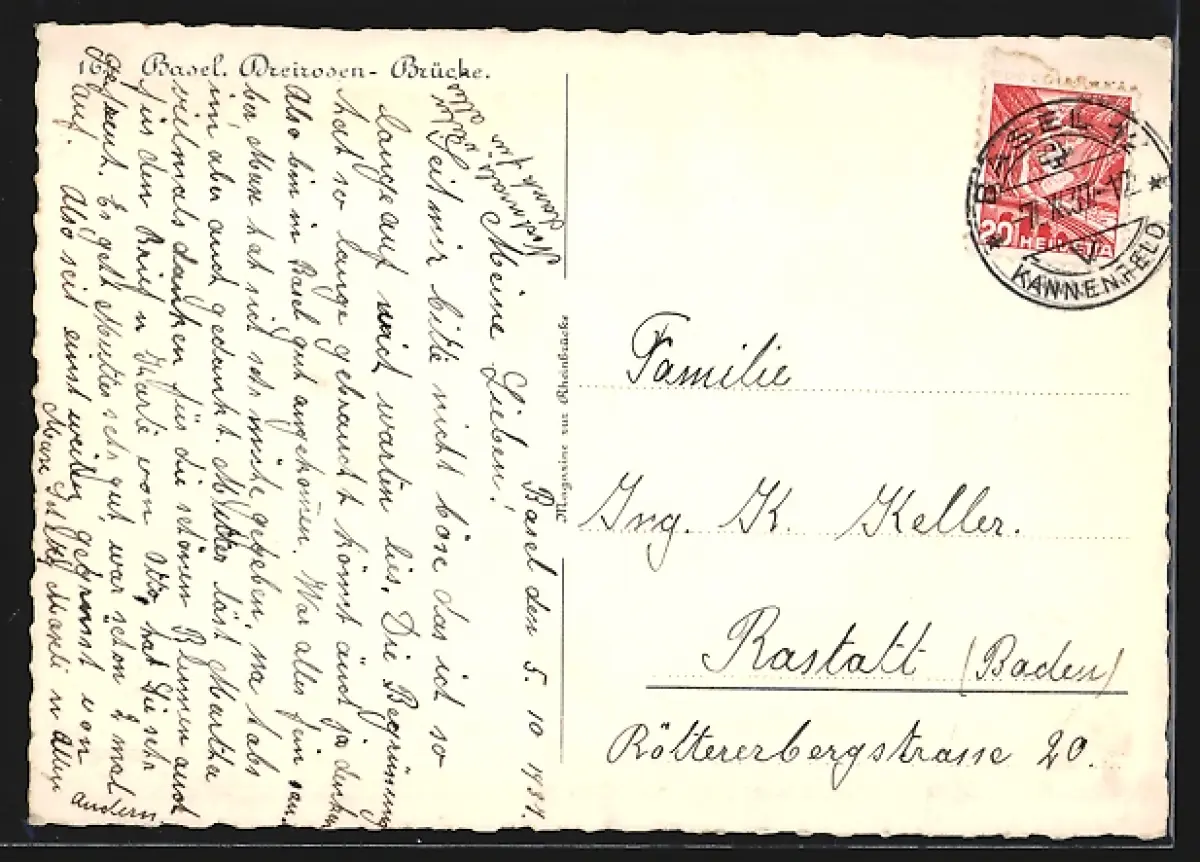 16 Basel. Dreirosen-Brücke.
Basel den 5. 10 1937.
Meine Lieben!
Seit mir bitte nicht böse das ich so
lange auf mich warten lies. Die Begrüssung
hat so lange gebraucht könnt äuch ja denken
Also bin in Basel gut angekomen. War alles fein
ber Max hat mich sehr mühe gegeben, na habs
im aber auch gedankt. Mutter läst Martha
vielmals danken für die schönen Blumen auch
für den Brief u Charli von hat Die sehr
gefreut. Es geht Mutter sehr gut, war schon 2 mal
auf. Also seit einst weilen gegrüsst von
Max u allen
andern.
Nochmals
dank für
alles
Verlagskarte
Familie
Ing. K. Keller.
Rastatt (Baden)
Röttererbergstrasse 20.
20 HELVETIA
BASEL
KANNENFELD